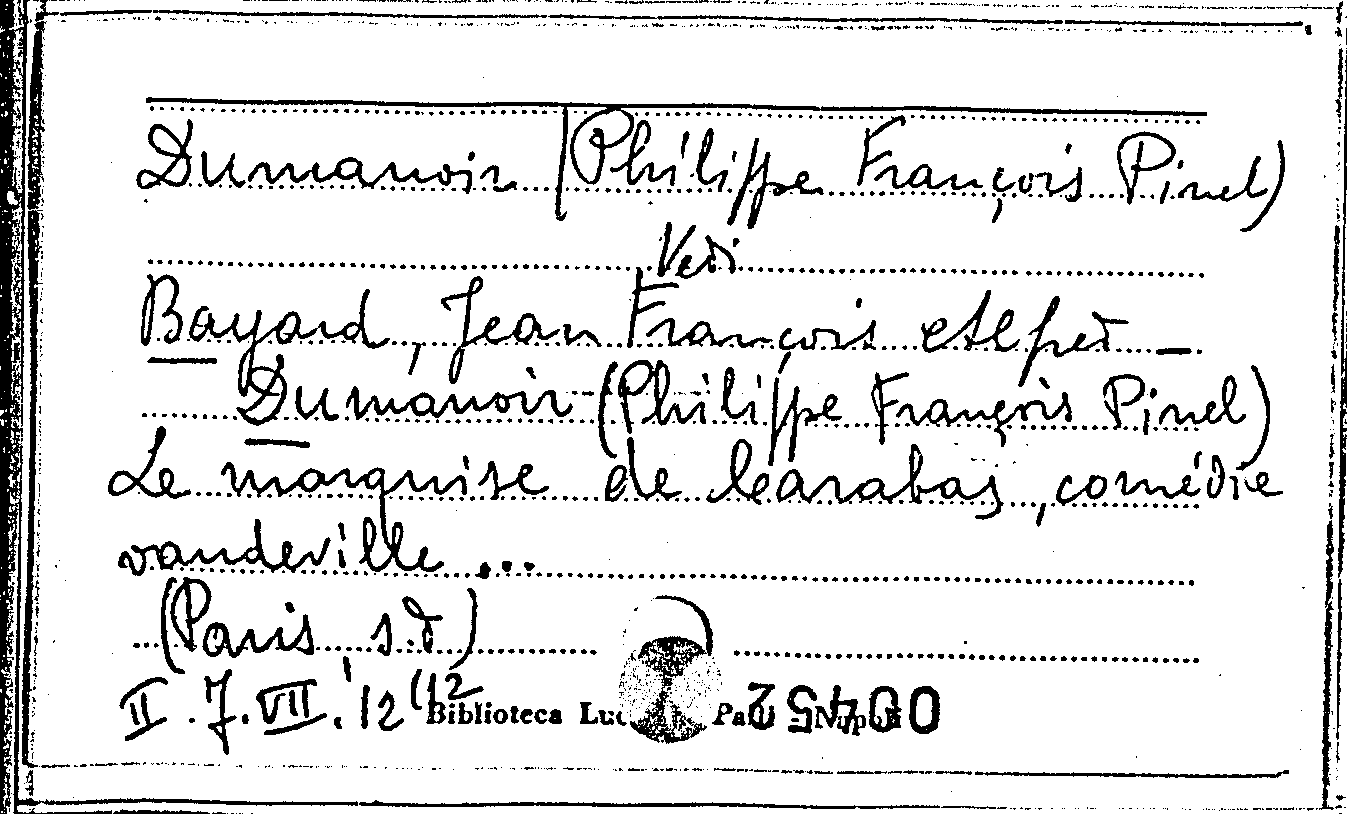 Dumanoir (Philippe François Pinel)
Vedi
Bayard, Jean François Alfred –
Dumanoir (Philippe François Pinel)
Le marquise de Carabas, comédie
vaudeville ...
(Paris, s.d)
II.J.VII.12(12
Biblioteca
00452